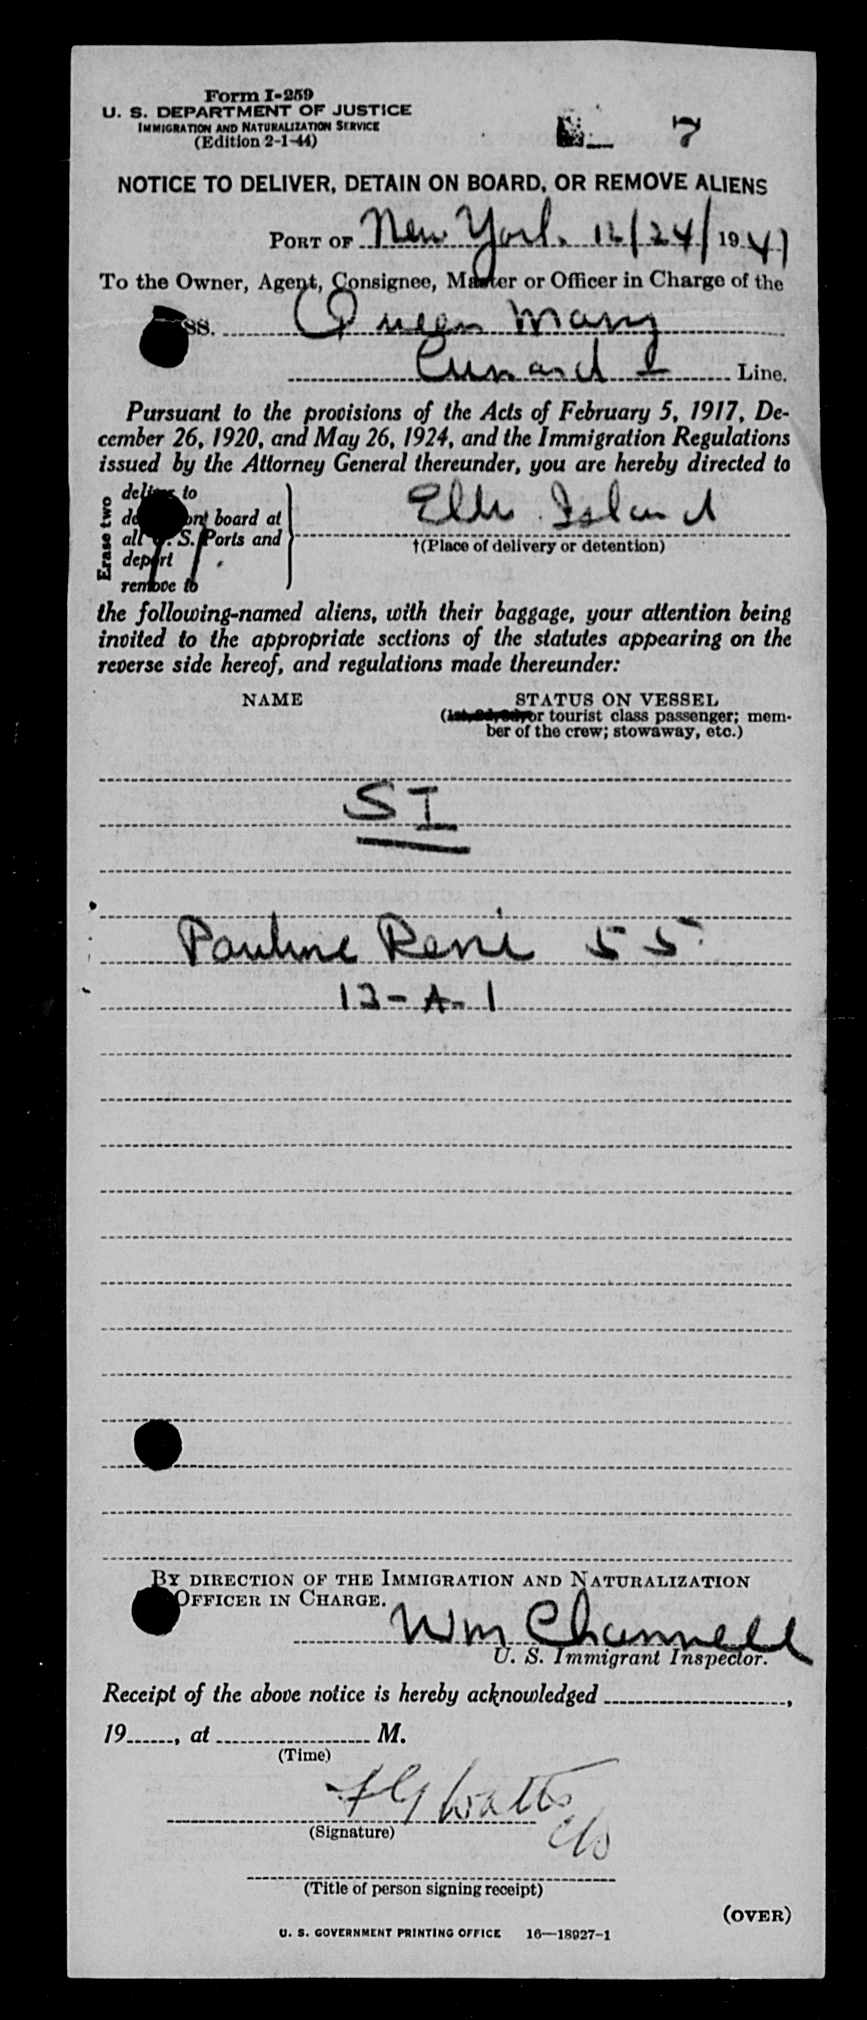 Form I-259
U. S. DEPARTMENT OF JUSTICE
IMMIGRATION AND NATURALIZATION SERVICE
(Edition 2-1-44)
7
NOTICE TO DELIVER, DETAIN ON BOARD, OR REMOVE ALIENS
PORT OF New York, 12/24/1947
To the Owner, Agent, Consignee, Master or Officer in Charge of the
SS. Queen Mary
Cunard Line.
Pursuant to the provisions of the Acts of February 5, 1917, De-
cember 26, 1920, and May 26, 1924, and the Immigration Regulations
issued by the Attorney General thereunder, you are hereby directed to
Erase two
deliver to
board at
all U. S. Ports and
deport
remove to
Ellis Island
†(Place of delivery or detention)
the following-named aliens, with their baggage, your attention being
invited to the appropriate sections of the statutes appearing on the
reverse side hereof, and regulations made thereunder:
NAME STATUS ON VESSEL
(or tourist class passenger; mem-
ber of the crew; stowaway, etc.)
SI
Pauline René 55
13-A-1
BY DIRECTION OF THE IMMIGRATION AND NATURALIZATION
OFFICER IN CHARGE.
Wm Channell
U. S. Immigrant Inspector.
Receipt of the above notice is hereby acknowledged ,
19 , at M.
(Time)
Watts
(Signature)
(Title of person signing receipt)
(OVER)
U. S. GOVERNMENT PRINTING OFFICE 16—18927-1